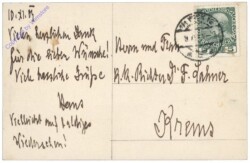 10. XI. 15
Vielen herzlichen Dank
für die lieben Wünsche!
Viele herzliche Grüße
Hans
Vielleicht auf baldiges
Wiedersehen!
Herrn und Frau
K.K. Richter Dr. F.
Krems